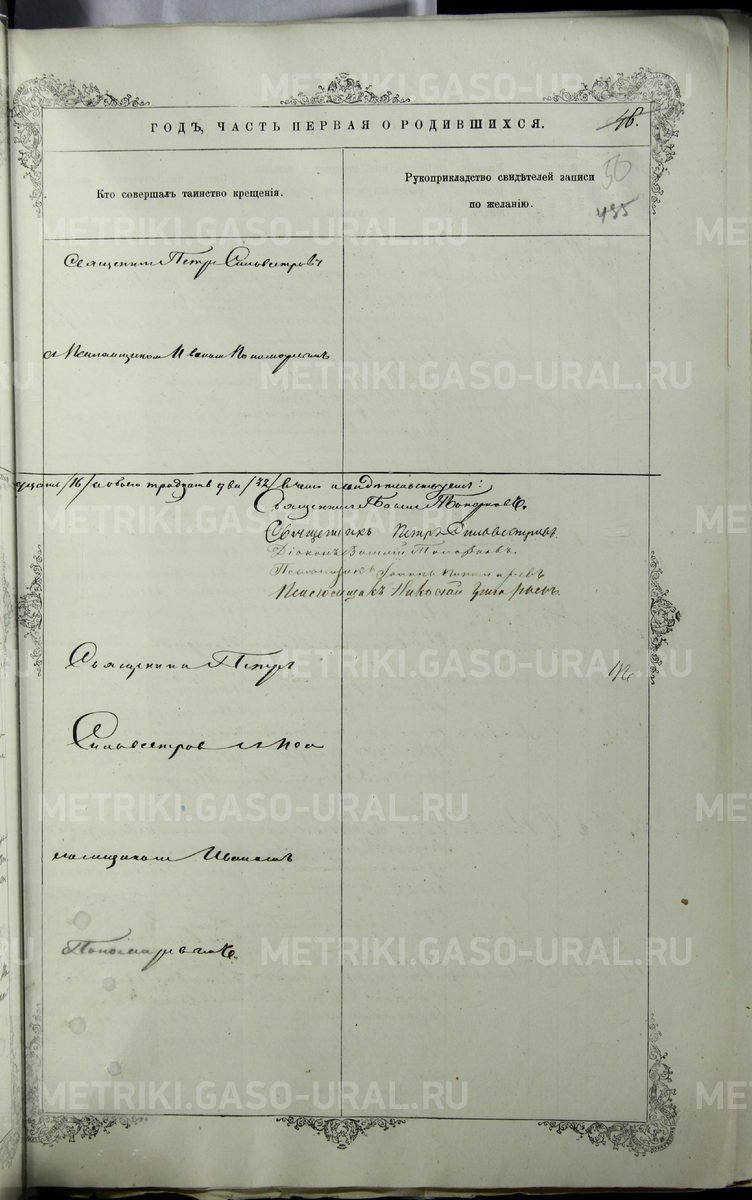 ГОДЪ, ЧАСТЬ ПЕРВАЯ О РОДИВШИХСЯ.
48.
Кто совершалъ таинство крещенія.
Рукоприкладство свидѣтелей записи
по желанію.
50
435
Священникъ Петръ Сильвестровъ
съ Псаломщикомъ Иваномъ Пономаревымъ
/16/ а обоего тридцать два /32/ въ чемъ и свидѣтельствуемъ:
Священникъ Топорковъ.
Священникъ Петръ Сильвестровъ
Діаконъ Василій
Псаломщикъ Іоаннъ Пономаревъ
Псаломщикъ Николай Григорьевъ
Священникъ Петръ
Сильвестровъ съ Пса
ломщикомъ Иваномъ
Пономаревымъ.
METRIKI.GASO-URAL.RU